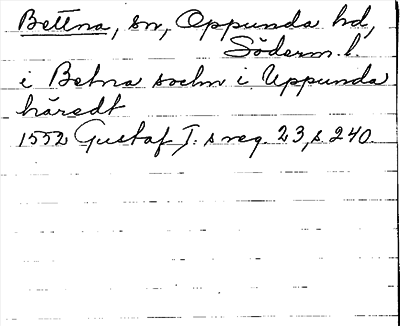 Bettna, sn, Oppunda hd,
Söderm. l.
i Betna sochn i Uppunda
häredt
1552 Gustaf I:s reg. 23, s. 240.